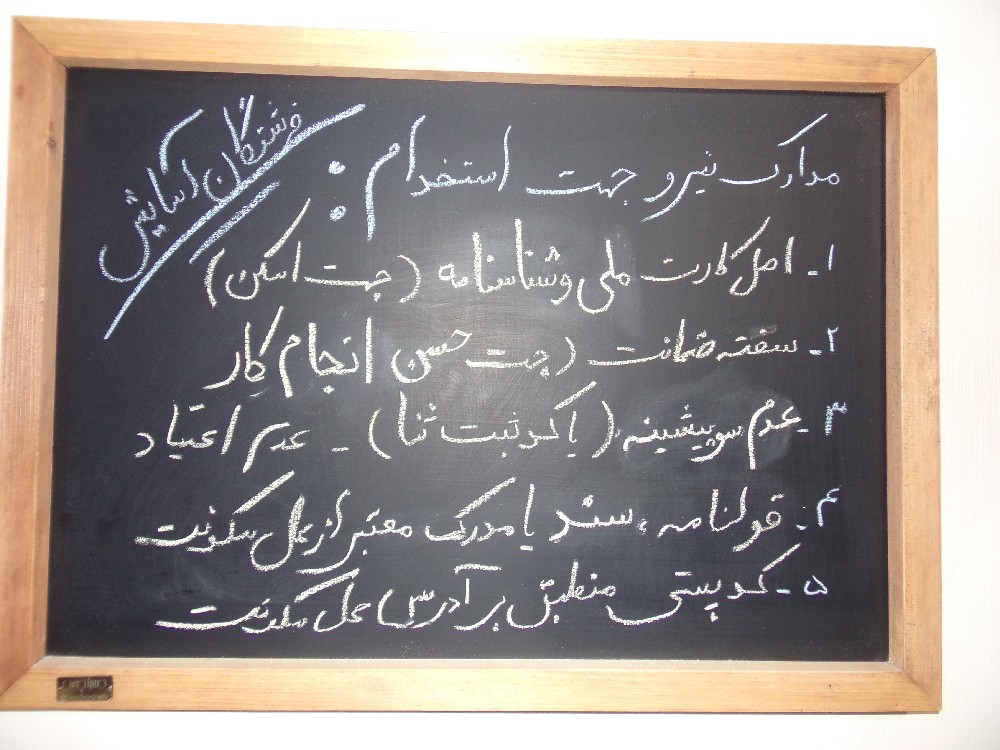 فرشتگان آسایش
مدارک نیرو جهت استخدام :
۱- اصل کارت ملی و شناسنامه (جهت اسکن)
۲- سفته ضمانت (جهت حسن انجام کار
۳- عدم سوپیشینه (یا کد ثبت ثنا) - عدم اعتیاد
۴- قولنامه ، سند یا مدرک معتبر از محل سکونت
۵- کد پستی منطبق بر آدرس محل سکونت